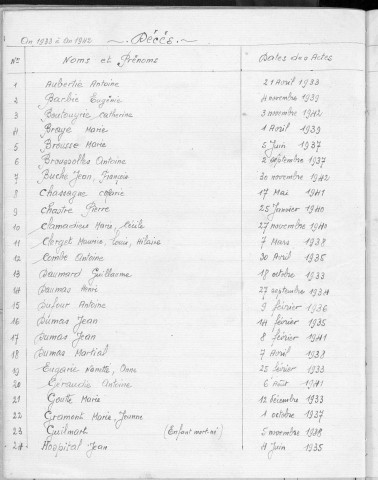 An 1933 à An 1942 ~ Décès. ~
Nos Noms et Prénoms Dates des Actes
1 Aubertie Antoine 21 Avril 1933
2 Barbie Eugénie 4 novembre 1939
3 Boutouyrie Catherine 3 novembre 1942
4 Braye Marie 1 Avril 1939
5 Brousse Marie 5 Juin 1937
6 Broussolles Antoine 2 septembre 1937
7 Buche Jean, François 30 novembre 1942
8 Chassagne 17 Mai 1941
9 Chastre Pierre 25 Janvier 1940
10 Clamadieu Marie, Cécile 27 novembre 1940
11 Clerget Maurice, Louis, Hilaire 7 Mars 1938
12 Combe Antoine 30 Avril 1935
13 Daumard Guillaume 18 octobre 1933
14 Daumas 27 septembre 1934
15 Dufour Antoine 9 février 1936
16 Dumas Jean 14 février 1935
17 Dumas Jean 8 février 1941
18 Dumas Martial 7 Avril 1938
19 Eugarie Namette, Anne 25 février 1933
20 Giraudie Antoine 6 Août 1941
21 Goutte Marie 12 Décembre 1933
22 Gramont Marie, Jeanne 1 octobre 1937
23 Guilmart (Enfant mort-né) 5 novembre 1938
24 Hospital Jean 4 Juin 1935